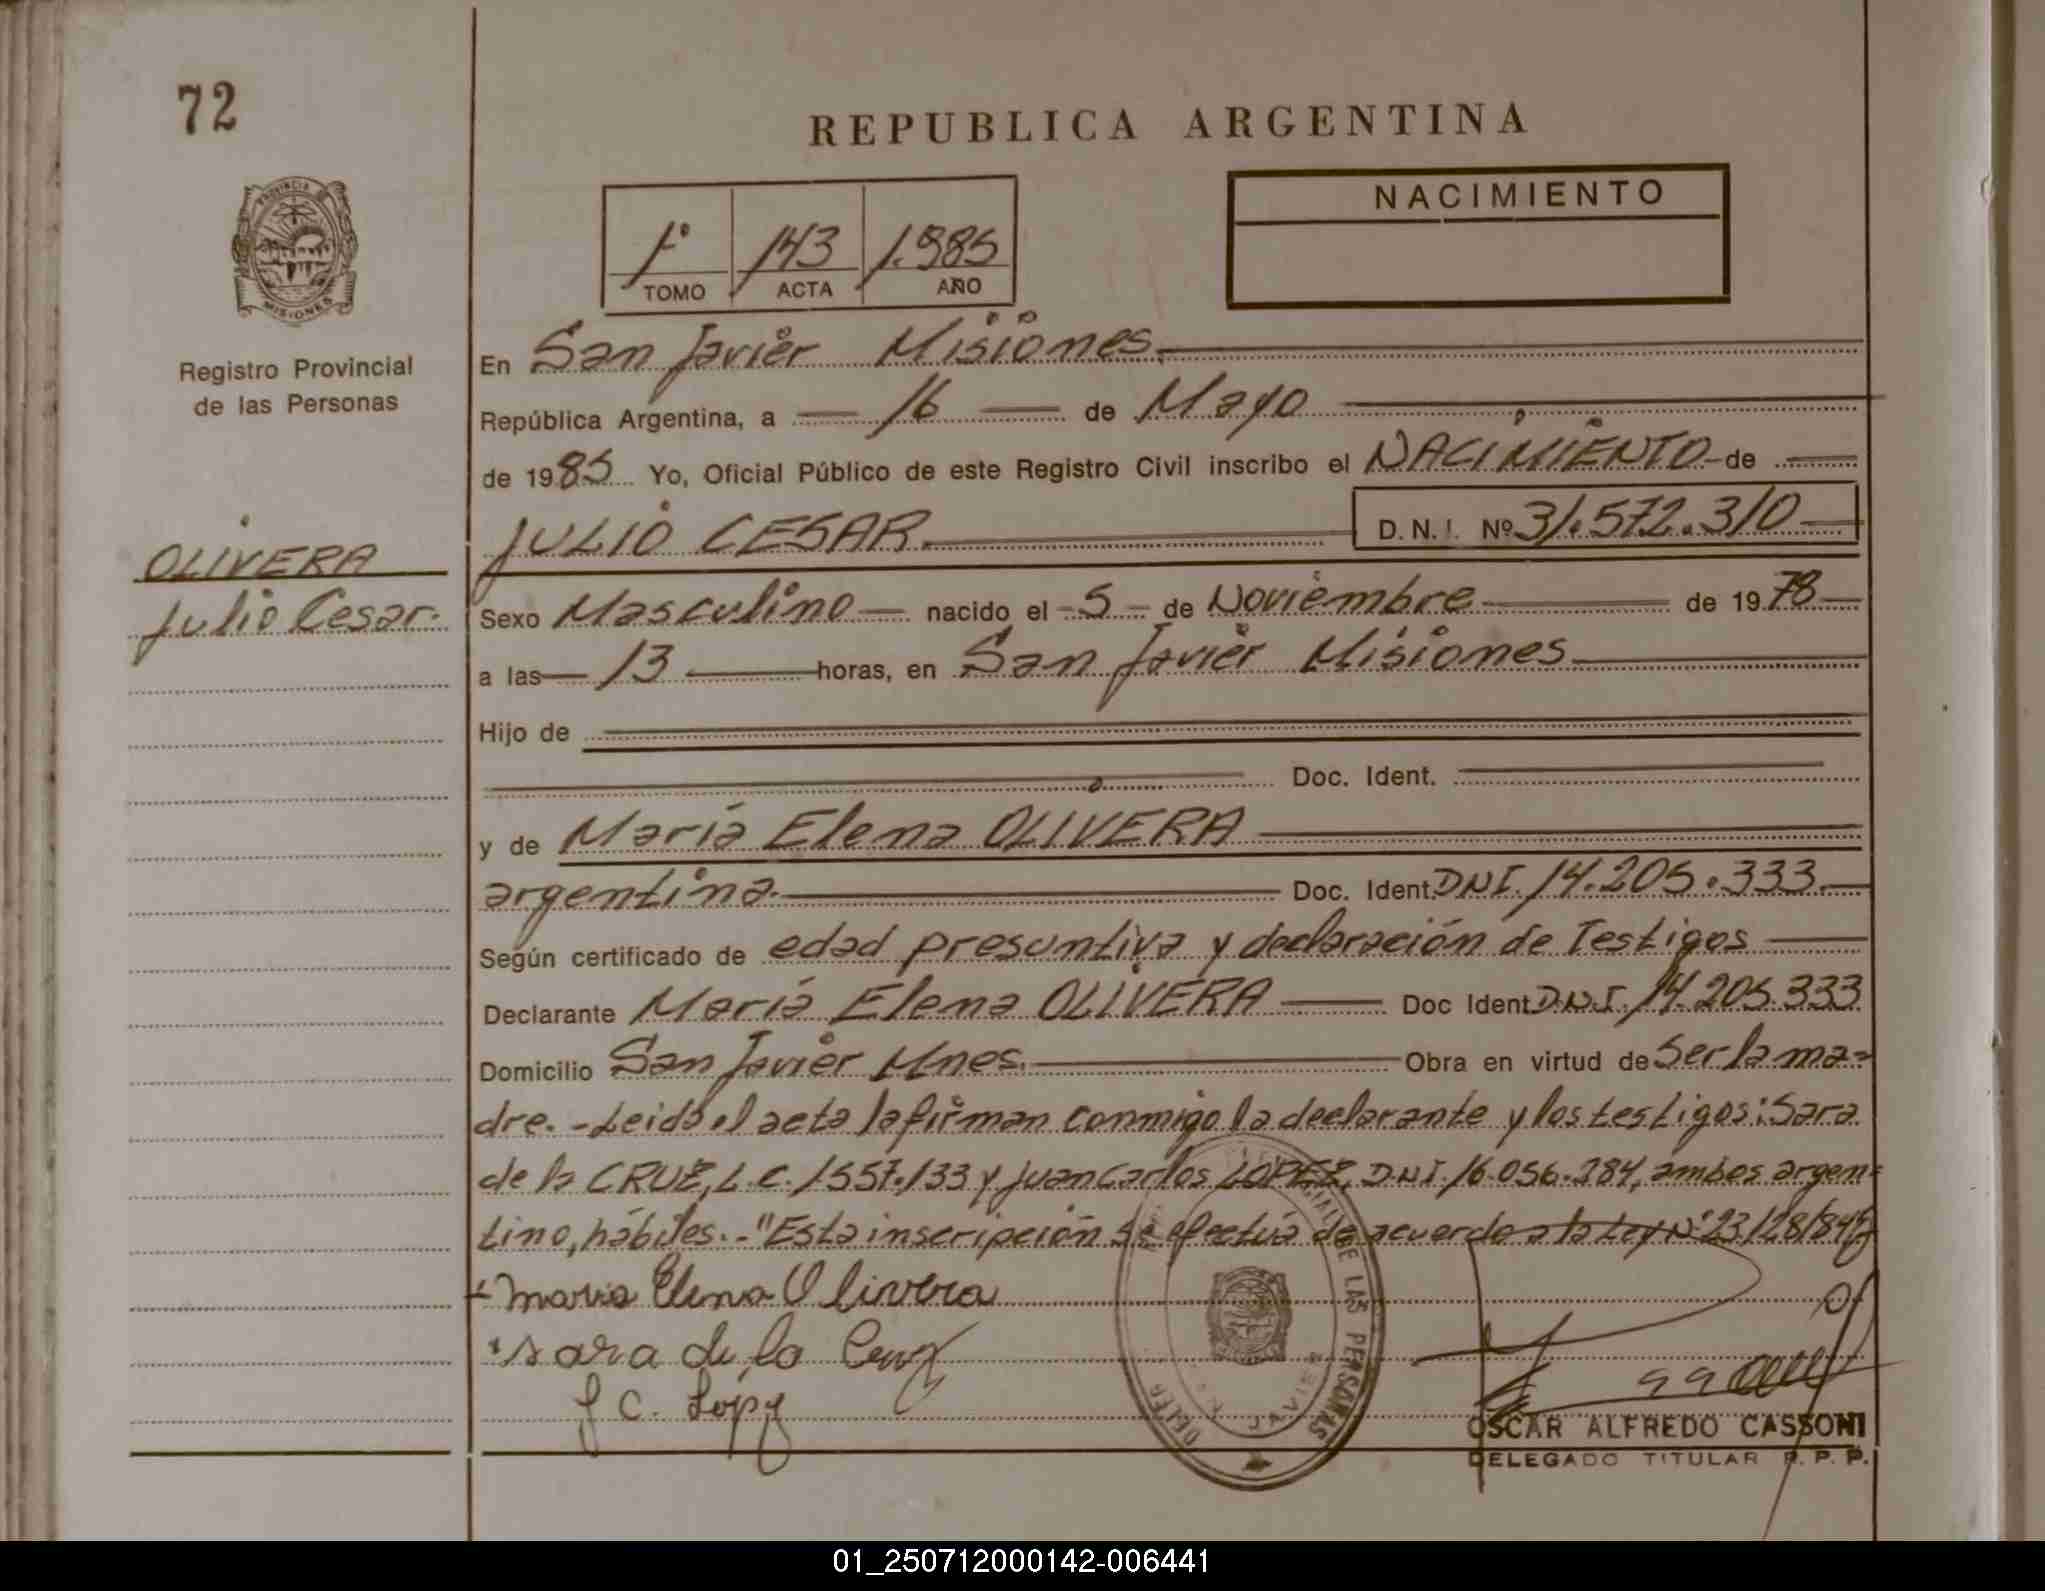 72
REPUBLICA ARGENTINA
PROVINCIA DE
MISIONES
Registro Provincial
de las Personas
1º 143 1.985
TOMO ACTA AÑO
NACIMIENTO
En San Javier Misiones.
República Argentina, a 16 de Mayo
de 1985 Yo, Oficial Público de este Registro Civil inscribo el NACIMIENTO de
JULIO CESAR. D.N.I. Nº 31.572.310
OLIVERA
Julio Cesar.
Sexo Masculino nacido el 5 de Noviembre de 1978
a las 13 horas, en San Javier Misiones
Hijo de
Doc. Ident.
y de María Elena OLIVERA
argentina. Doc. Ident. DNI. 14.205.333.
Según certificado de edad presuntiva y declaración de Testigos
Declarante María Elena OLIVERA Doc Ident. D.N.I. 14.205.333
Domicilio San Javier Mnes. Obra en virtud de Ser la ma=
dre.-Leida el acta la firman conmigo la declarante y los testigos: Sara
de la CRUZ, L.C. 1557.133 y Juan Carlos LOPEZ, D.N.I. 16.056.384, ambos argen=
tino, hábiles.-"Esta inscripción se efectúa de acuerdo a la Ley Nº 23128/84
Maria Elena Olivera
Sara de la Cruz
J C. López
DE LAS PERSONAS
JAVIER
OSCAR ALFREDO CASSONI
DELEGADO TITULAR R. P. P.
01_250712000142-006441